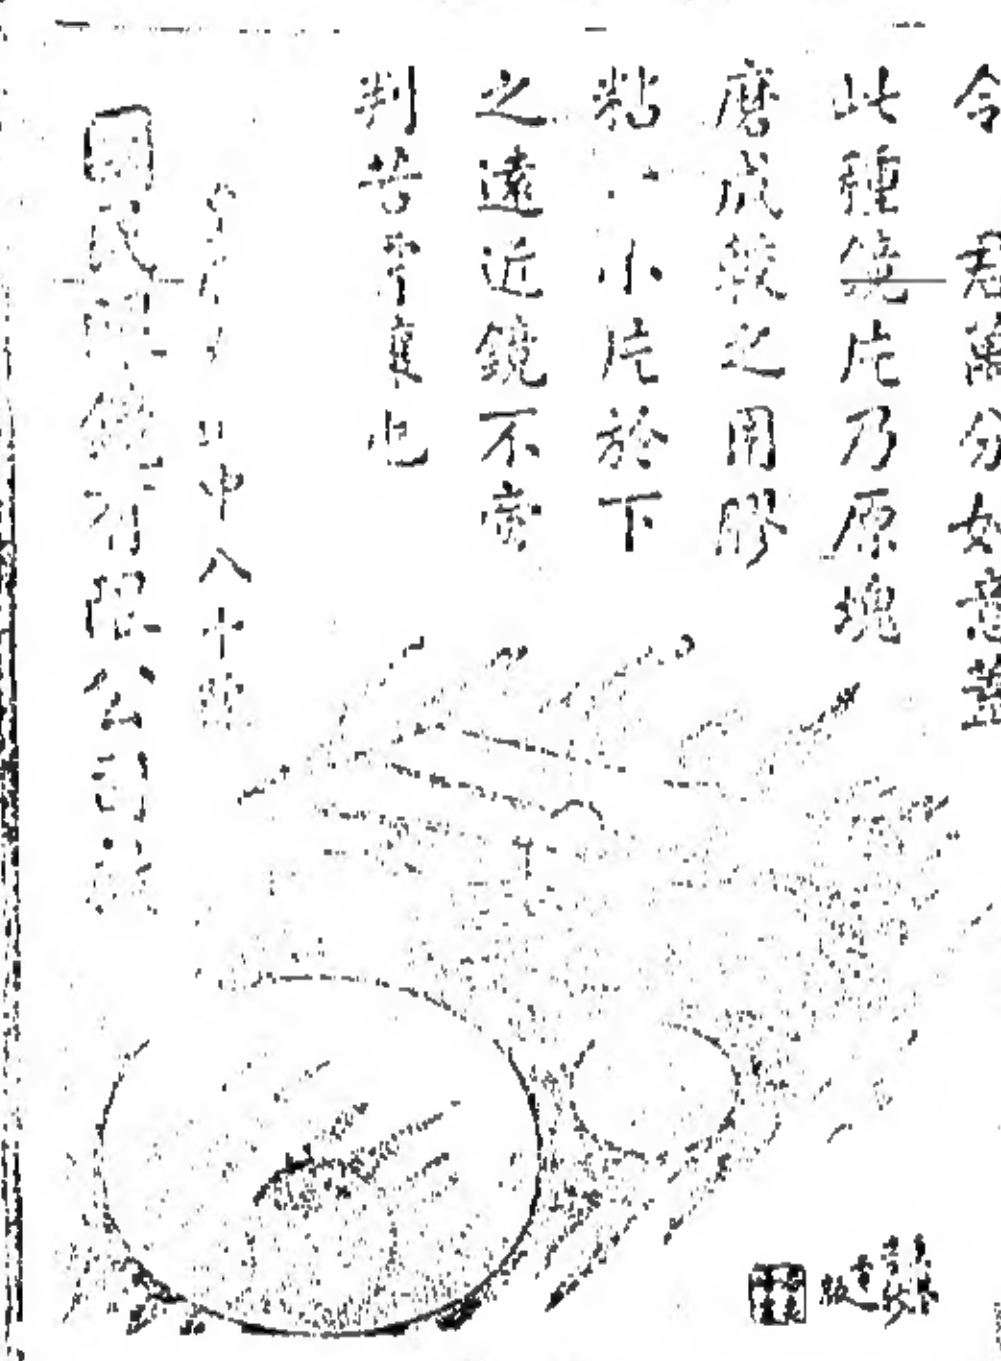 令君萬分如意蓋
此種鏡片乃原塊
磨成較之用膠
粘一小片於下
之遠近鏡不啻
判若霄壤也
中八十號
國民眼鏡有限公司啟